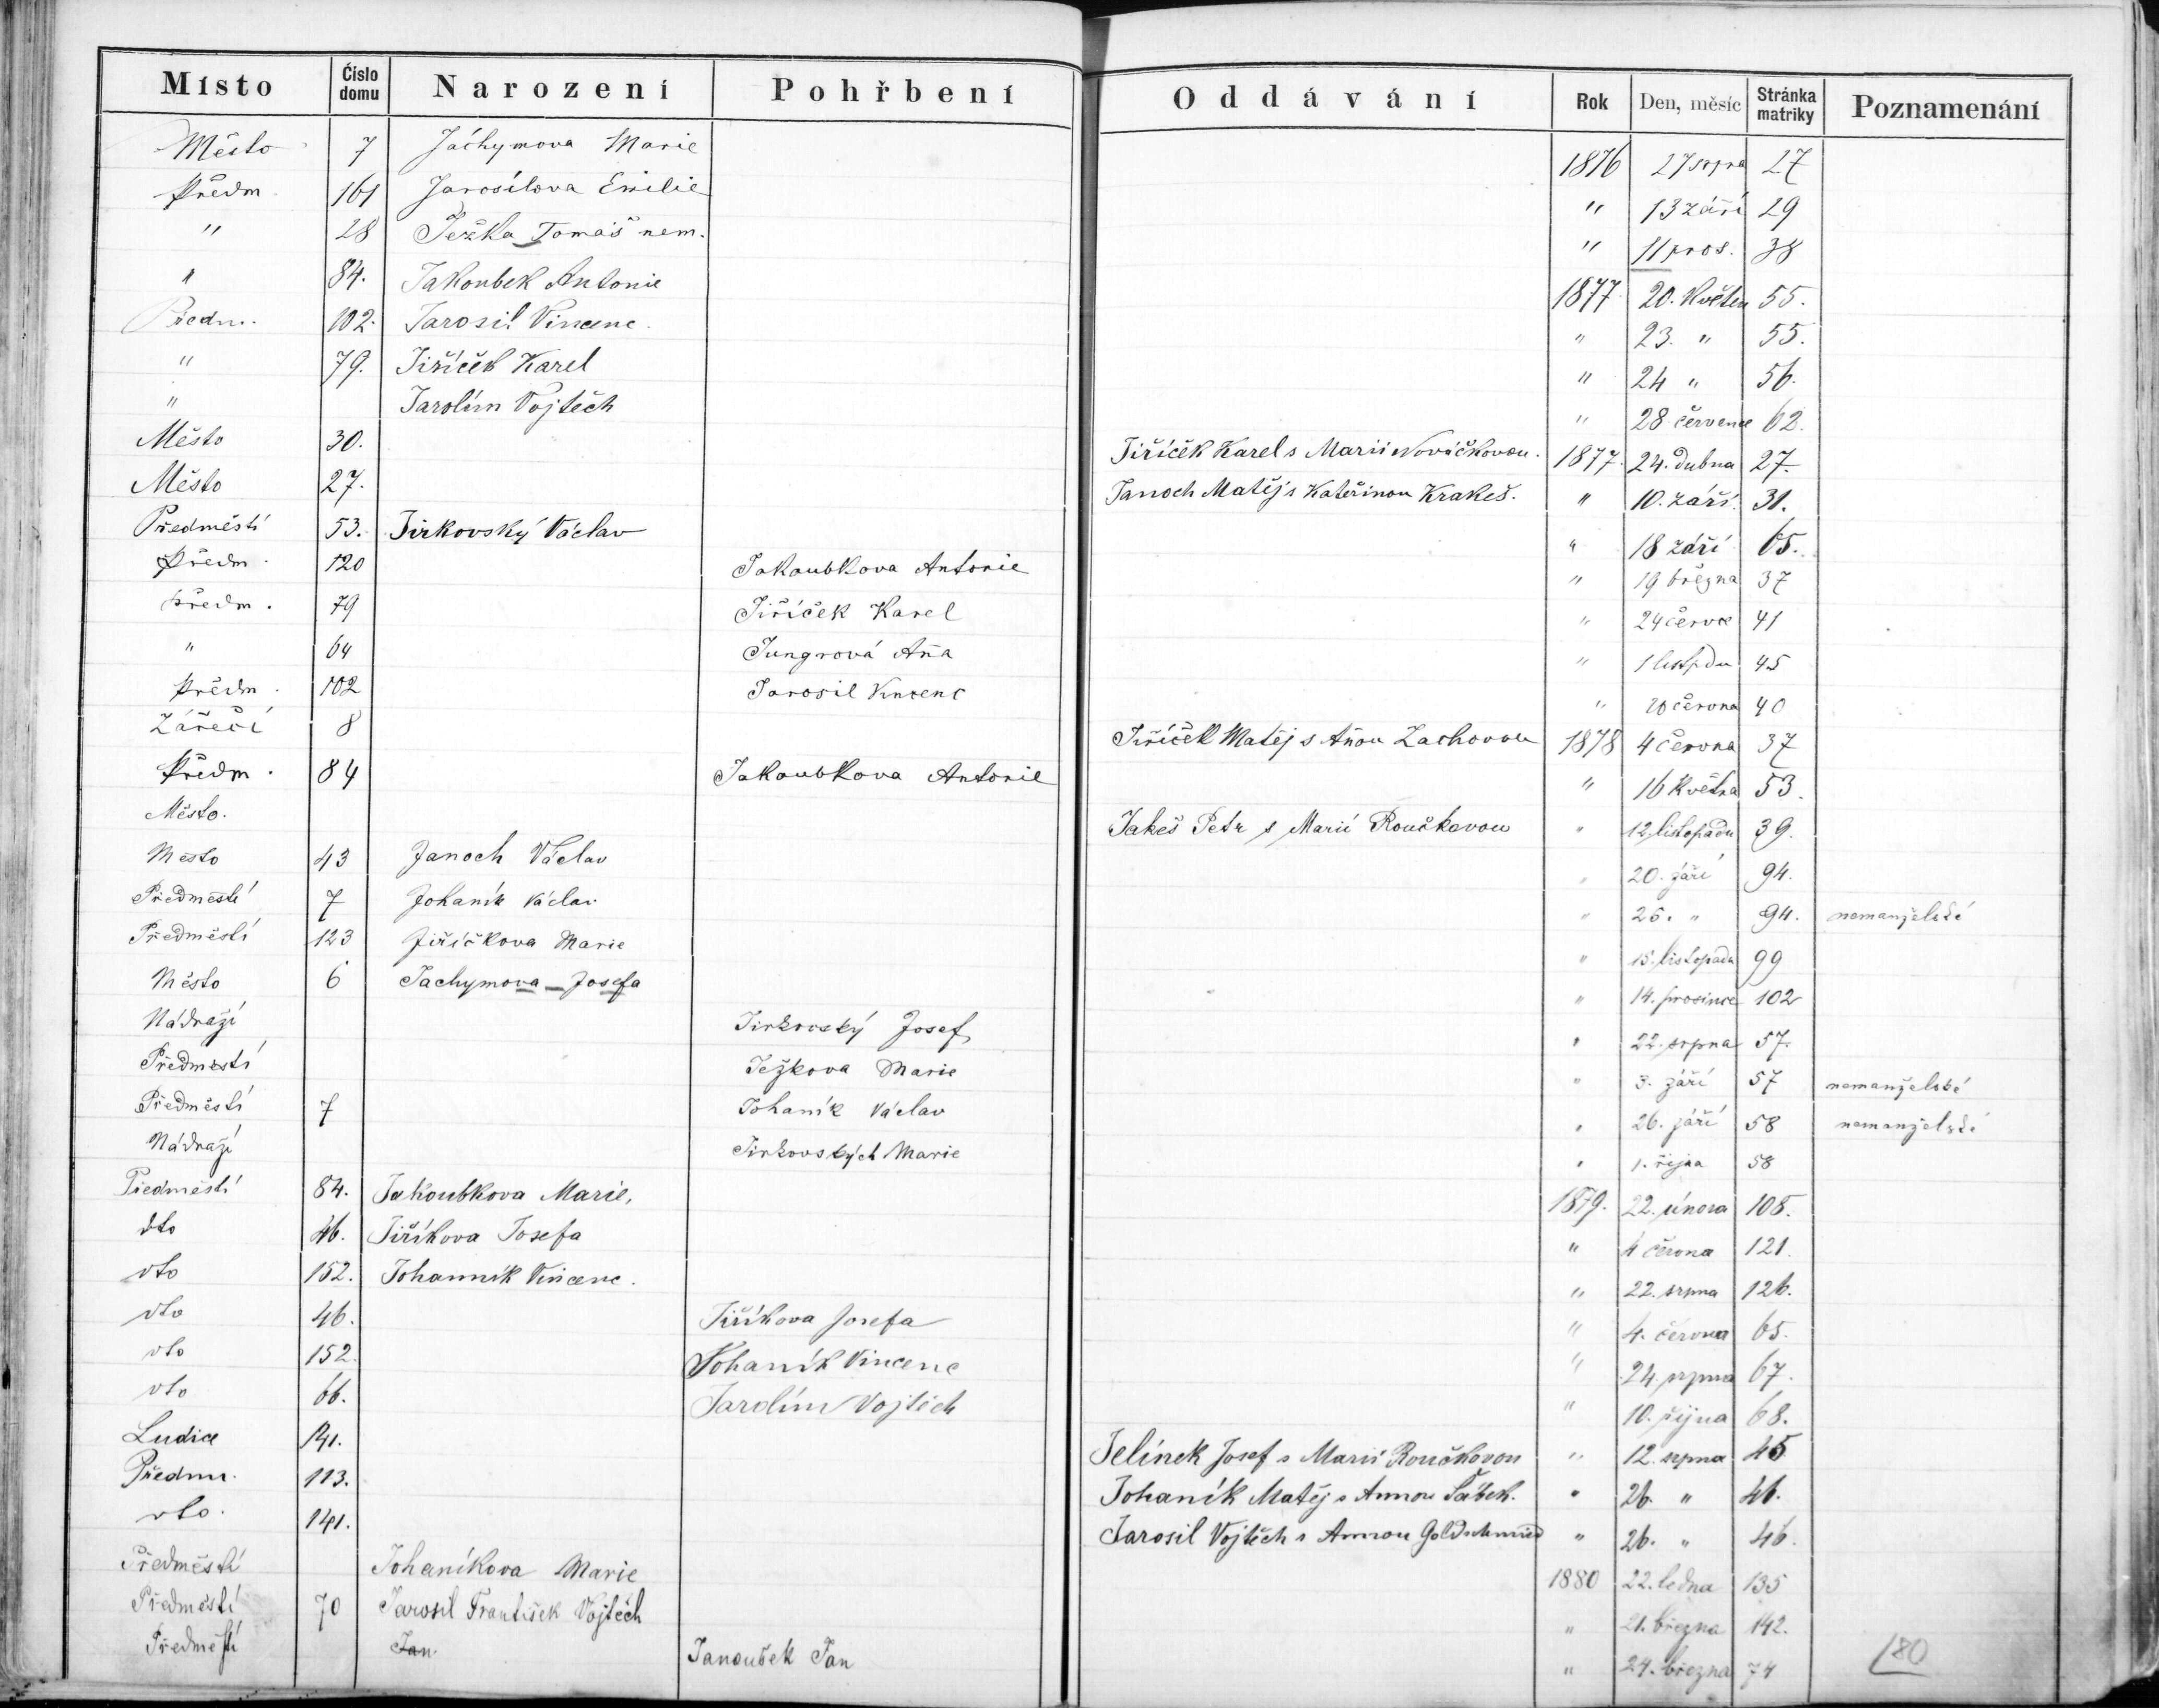 Místo Číslo domu Narození Pohřbení Oddávání Rok Den, měsíc Stránka matriky Poznamenání
Město 7 Jáchymova Marie 1876 27 srpna 27
Předm 161 Jarosilova Emilie " 13 září 29
" 28 Ježka Tomáš nem. " 11 pros. 38
" 84. Jakoubek Antonie 1877 20. Květen 55.
Předm. 102. Jarosil Vincenc. " 23. " 55.
" 79. Jiříček Karel " 24 " 56.
" Jarolím Vojtěch " 28 července 62.
Město 30. Jiříček Karel s Marií Nováčkovou. 1877. 24. dubna 27.
Město 27. Janoch Matěj s Kateřinou Krakeš. " 10. září. 31.
Předměstí 53. Jirkovský Václav " 18 září 65.
Předm. 120 Jakoubkova Antonie " 19 března 37
Předm. 79 Jiříček Karel " 24 červce 41
" 64 Jungrová Aña " 1 listpdu 45
Předm. 102 Jarosil Vincenc " 20 června 40
Zářečí 8 Jiříček Matěj s Añou Zachovou 1878 4 června 37
Předm. 84 Jakoubkova Antonie " 16 Května 53.
Město. Jakeš Petr s Marií Roučkovou " 12. listopadu 39.
Město 43 Janoch Václav " 20. září 94.
Předměstí 7 Johaník Václav " 25. " 94. nemanželské
Předměstí 123 Jiříčkova Marie " 15. listopadu 99
Město 6 Jachymova Josefa " 14. prosince 102
Nádraží Jirkovský Josef " 22. srpna 57.
Předmestí Ježkova Marie " 3. září 57 nemanželské
Předměstí 7 Johaník Václav " 26. září 58 nemanželské
Nádraží Jirkovských Marie " 1. října 58
Předměstí 84. Jakoubkova Marie, 1879. 22. února 108.
dto 46. Jiříkova Josefa " 4 června 121.
dto 152. Johanník Vincenc. " 22. srpna 126.
dto 46. Jiříkova Josefa " 4. června 65.
dto 152. Johaník Vincenc " 24. srpna 67.
dto 66. Jarolím Vojtěch " 10. října 68.
Ludice Jelínek Josef s Marií Roučkovou " 12. srpna 45
Předm. 113. Johaník Matěj s Annou Šábek. " 26. " 46.
dto. 141. Jarosil Vojtěch s Annou Goldschmied " 26. " 46.
Předměstí Johaníkova Marie 1880 22. ledna 135
Předměstí 70 Jarosil František Vojtěch " 21. března 142.
Předměstí Jan Janoušek Jan " 24. března 74
180